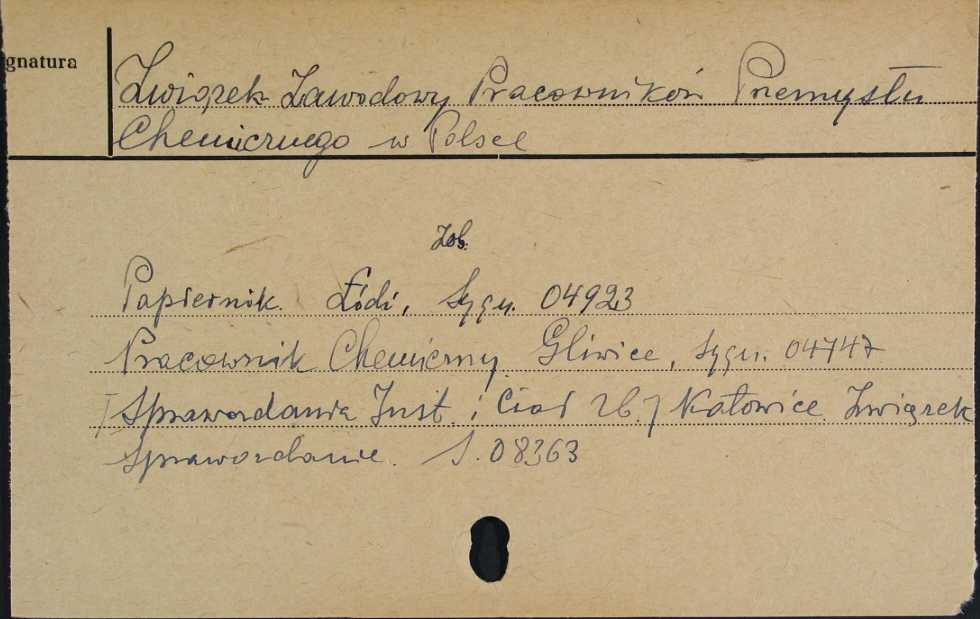 gnatura
Związek Zawodowy Pracowników Przemysłu
Chemicznego w Polsce
Zob.
Papiernik. Łódź, Sygn. 04923
Pracownik Chemiczny. Gliwice, Sygn. 04747
[Sprawozdania Inst. i Ciał Zb.] Katowice. Związek
Sprawozdanie. S. 08363